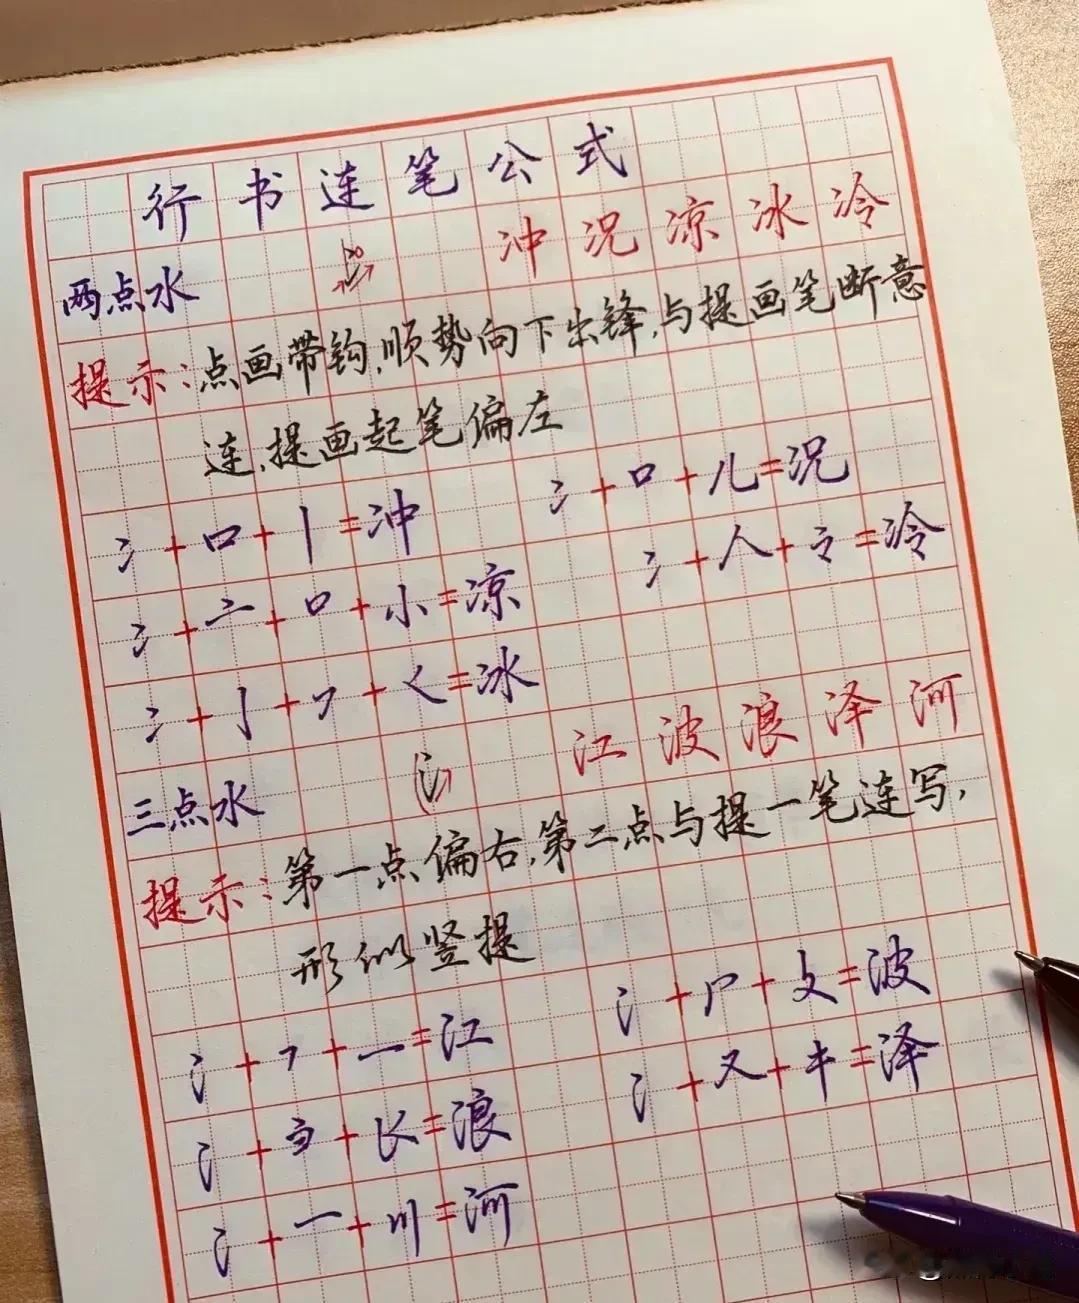 行书连笔公式
两点水 冫 冲况凉冰冷
提示:点画带钩,顺势向下出锋,与提画笔断意
连,提画起笔偏左
冫+口+丨=冲 冫+口+儿=况
冫+亠+口+小=凉 冫+人+令=冷
冫+亅+フ+く=冰
三点水 氵 江波浪泽河
提示:第一点偏右,第二点与提一笔连写,
形似竖提
氵+㇇+一=江 氵+尸+攵=波
氵+彐+长=浪 氵+又+キ=泽
氵+一+川=河